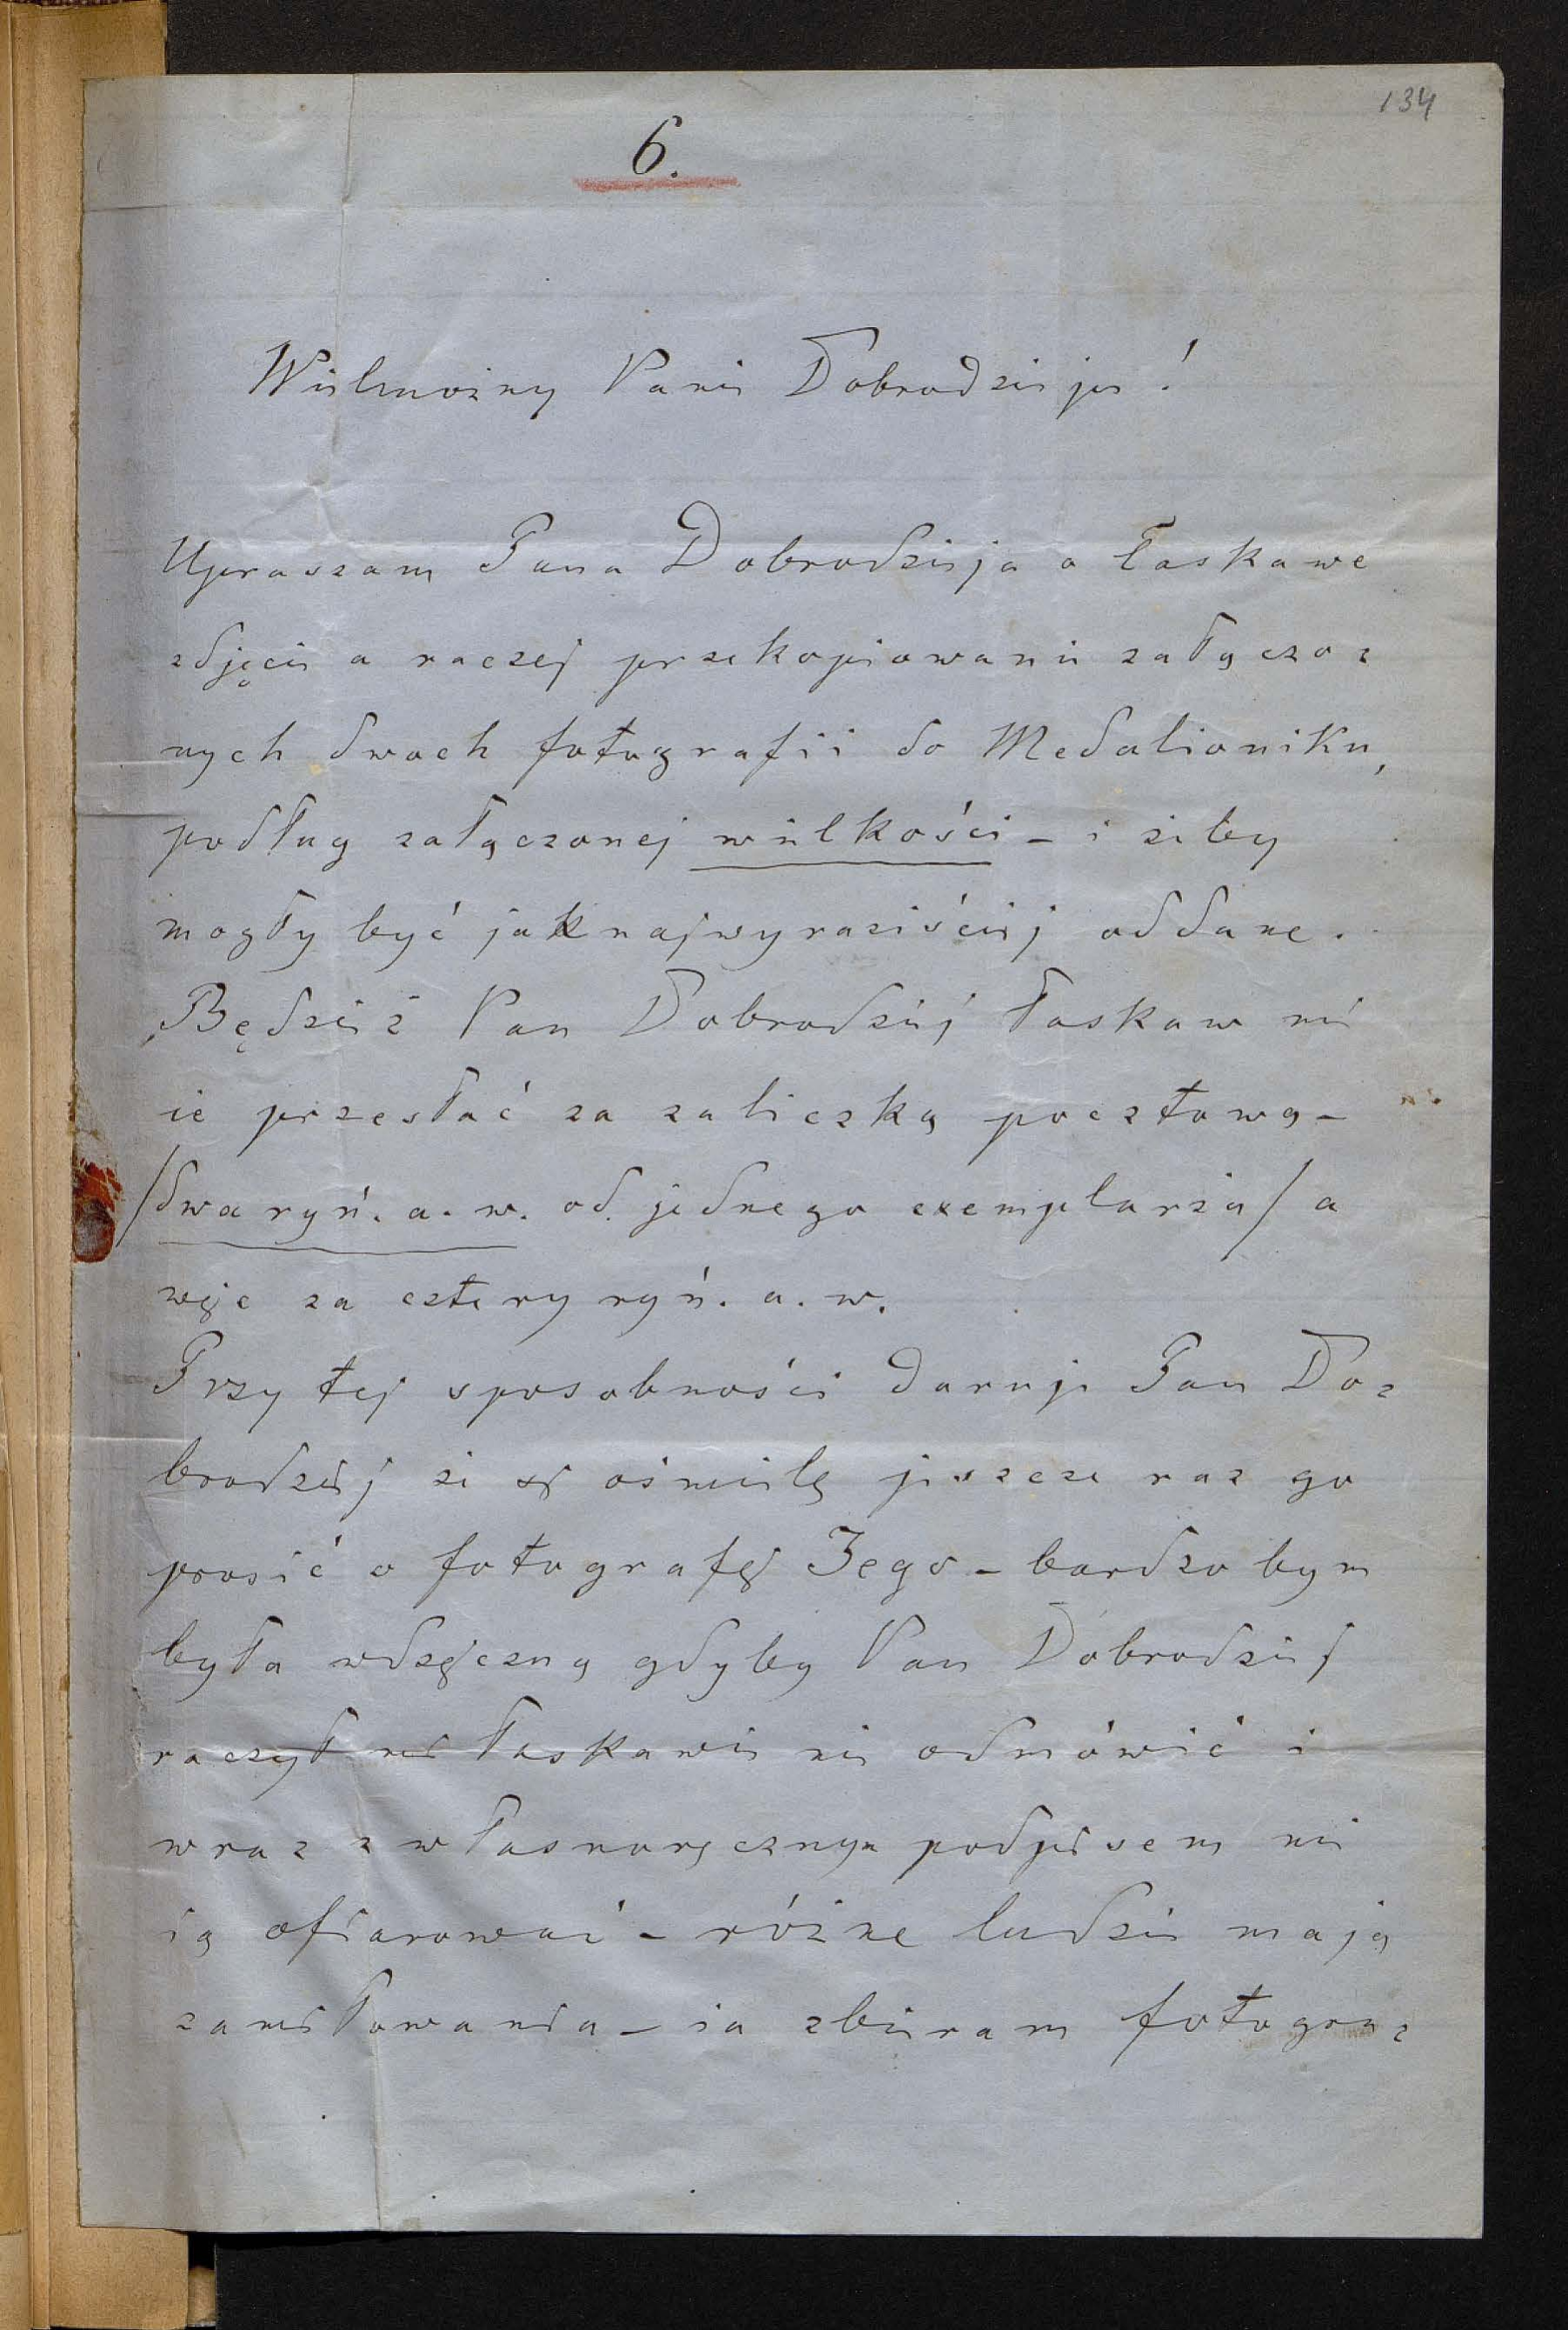 134
6.
Wielmożny Panie Dobrodzieju!
Upraszam Pana Dobrodzieja o łaskawe
zdjęcie a raczej przekopiowanie załączo=
nych dwoch fotografii do Medalioniku,
podług załączonej wielkości – i żeby
mogły być jaknajwyraziściej oddane.
Będzież Pan Dobrodziej łaskaw mi
ie przesłać za zaliczką pocztową –
/dwa ryń. a. w. od jednego exemplarza/ a
więc za cztery ryń. a. w.
Przy tej sposobności daruje Pan Do=
brodziej że się ośmielę jeszcze raz go
prosić o fotografię Jego – bardzo bym
była wdzięczną gdyby Pan Dobrodziej
raczył mi łaskawie nie odmówić i
wraz z własnoręcznym podpisem mi
ią ofiarować – różne ludzie mają
zamiłowania – ia zbieram fotogra=